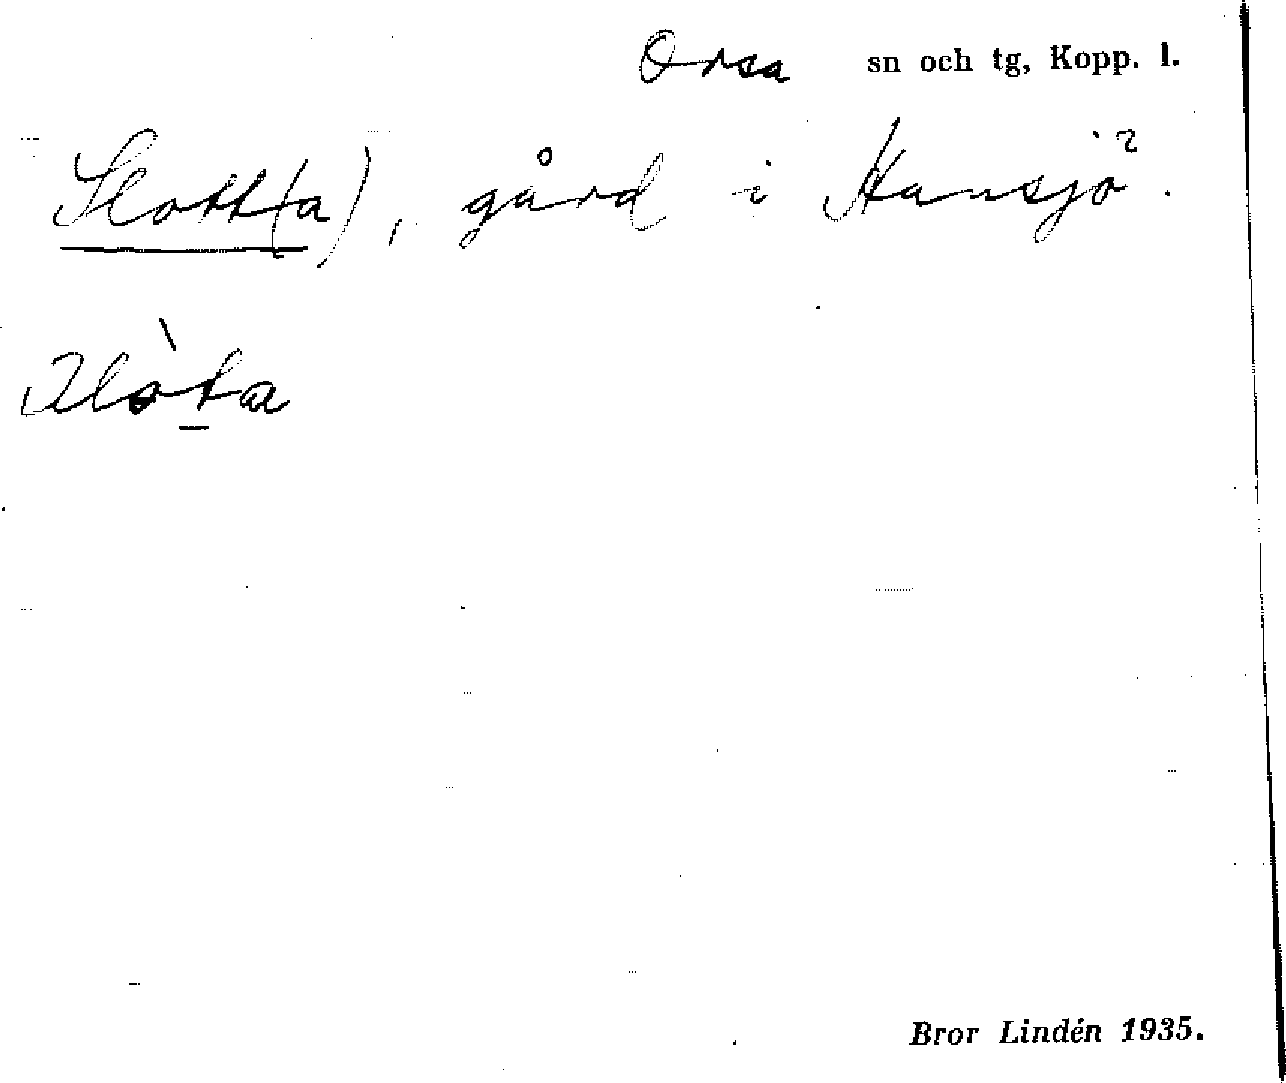 Orsa sn och tg, Kopp. l.
Slott(a), gård i Hansjö.
Bror Lindén 1935.